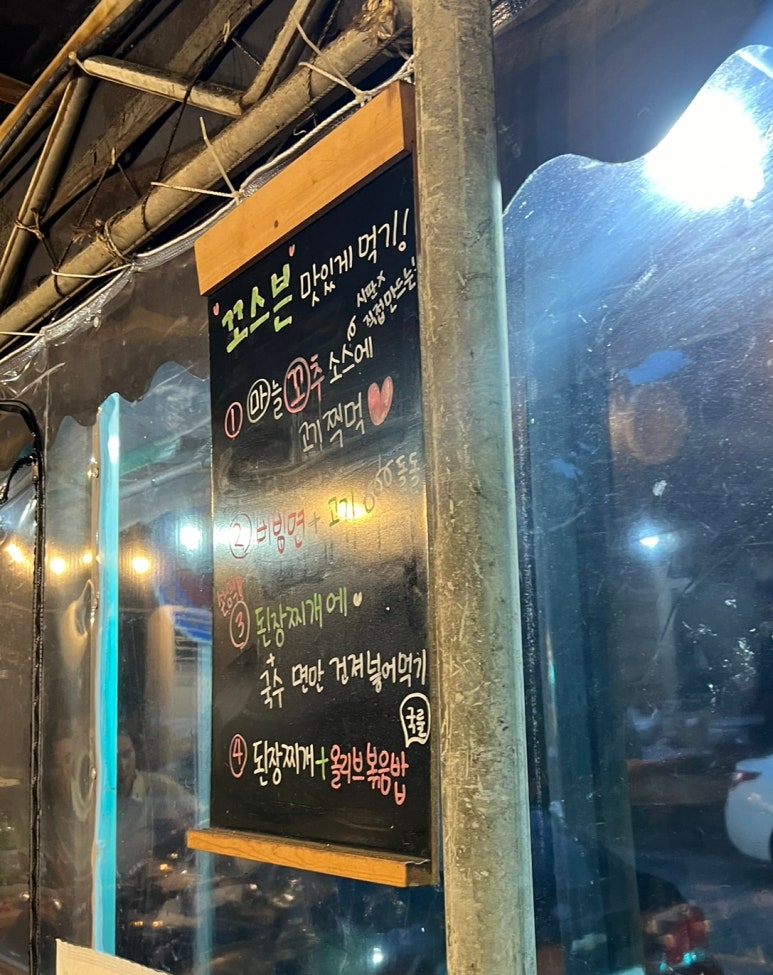 꼬스븐 맛있게 먹기!
시판x
직접만드는
① 마늘꼬추 소스에
고기찍먹
② 비빔면 + 고기 돌돌
③ 된장찌개에
+
국수 면만 건져넣어먹기
국룰
④ 된장찌개+올리브볶음밥